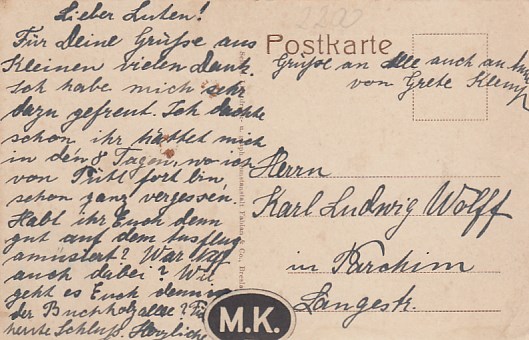 Lieber Luten!
Für Deine Grüße aus
Kleinen vielen Dank.
Ich habe mich sehr
dazu gefreut. Ich dachte
schon ihr hättet mich
in den 8 Tagen, wo ich
von fort bin
schon ganz vergessen.
Habt ihr Euch denn
gut auf dem Ausflug
amüsiert? War
auch dabei? Wie
geht es Euch denn in
der Buchholzallee? Für
heute Schluß. Herzliche
2200
Postkarte
Grüße an Alle auch an
von Grete
Herrn
Karl Ludwig Wolff
in Parchim
Langestr.
Kunstanstalt Fabian & Co., Breslau
M.K.